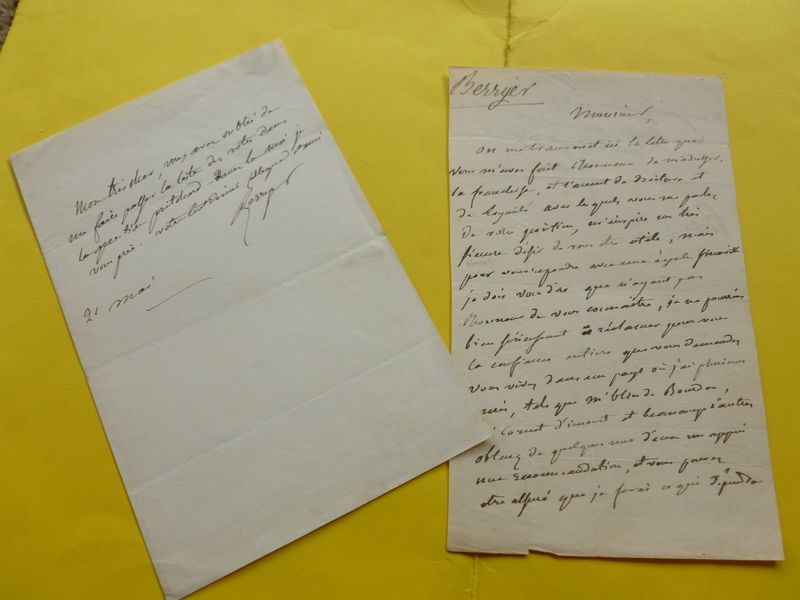 Mon très cher, vous avez oublié de
me faire passer la liste des votes dans
la question
vous prie. votre tout dévoué collègue et ami
Berryer
21 mai
Berryer
Monsieur,
On me transmet ici la lettre que
vous m'avez fait l'honneur de m'adresser.
la franchise, et l'accent de droiture et
de loyauté avec lesquels vous me parlez
de votre position, m'inspire un très
sincère désir de vous être utile, mais
pour vous répondre avec une égale sincérité
je dois vous dire que n'ayant pas
l'honneur de vous connaître, je ne pourrais
bien sérieusement réclamer pour vous
la confiance entière que vous demandez
vous vivez dans un pays où j'ai plusieurs
amis, tels que Mr de Bourdon,
Cornet d'incourt et beaucoup d'autres
obtenez de quelques uns d'eux un appui
une recommandation, et vous pouvez
être assuré que je ferai ce qui